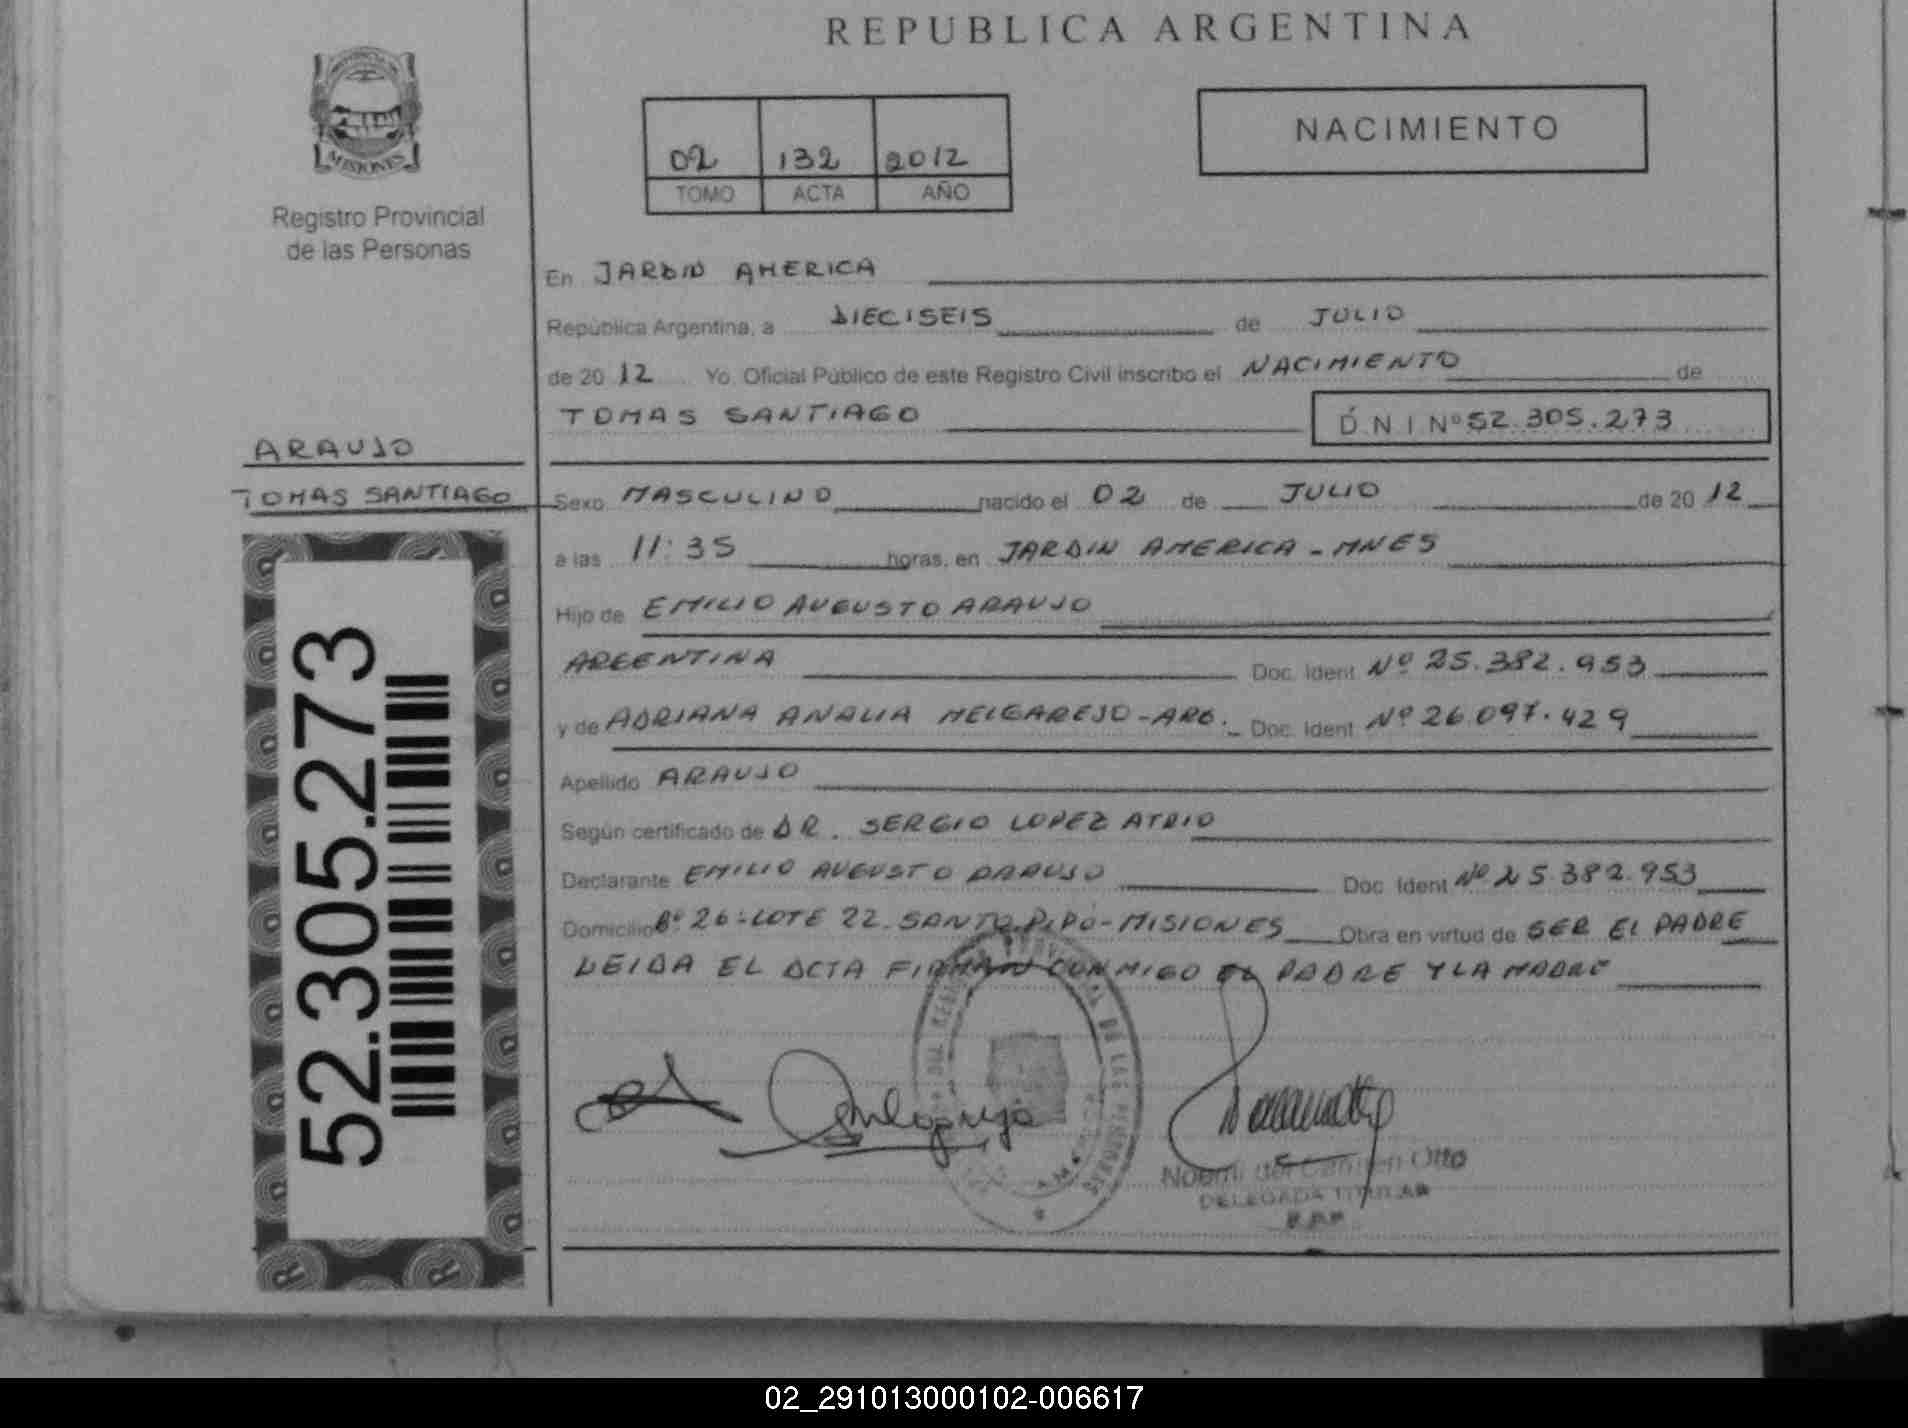 REPUBLICA ARGENTINA
MISIONES
Registro Provincial
de las Personas
02 132 2012
TOMO ACTA AÑO
NACIMIENTO
En JARDIN AMERICA
República Argentina, a DIECISEIS de JULIO
de 20 12 Yo. Oficial Público de este Registro Civil inscribo el NACIMIENTO de
TOMAS SANTIAGO D N I Nº 52.305.273
ARAUJO
TOMAS SANTIAGO
Sexo MASCULINO nacido el 02 de JULIO de 20 12
a las 11:35 horas, en JARDIN AMERICA - MNES
Hijo de EMILIO AUGUSTO ARAUJO
ARGENTINA Doc. Ident Nº 25.382.953
y de ADRIANA ANALIA MELGAREJO - ARG. Doc. Ident Nº 26.097.429
Apellido ARAUJO
Según certificado de DR. SERGIO LOPEZ ATRIO
Declarante EMILIO AUGUSTO ARAUJO Doc. Ident Nº 25.382.953
Domicilio Bº 26-LOTE 22-SANTO PIPO-MISIONES Obra en virtud de SER EL PADRE
LEIDA EL ACTA FIRMAN CONMIGO EL PADRE Y LA MADRE
52.305.273
DE LAS PERSONAS
Noemi del Carmen Otto
DELEGADA TITULAR
02_291013000102-006617